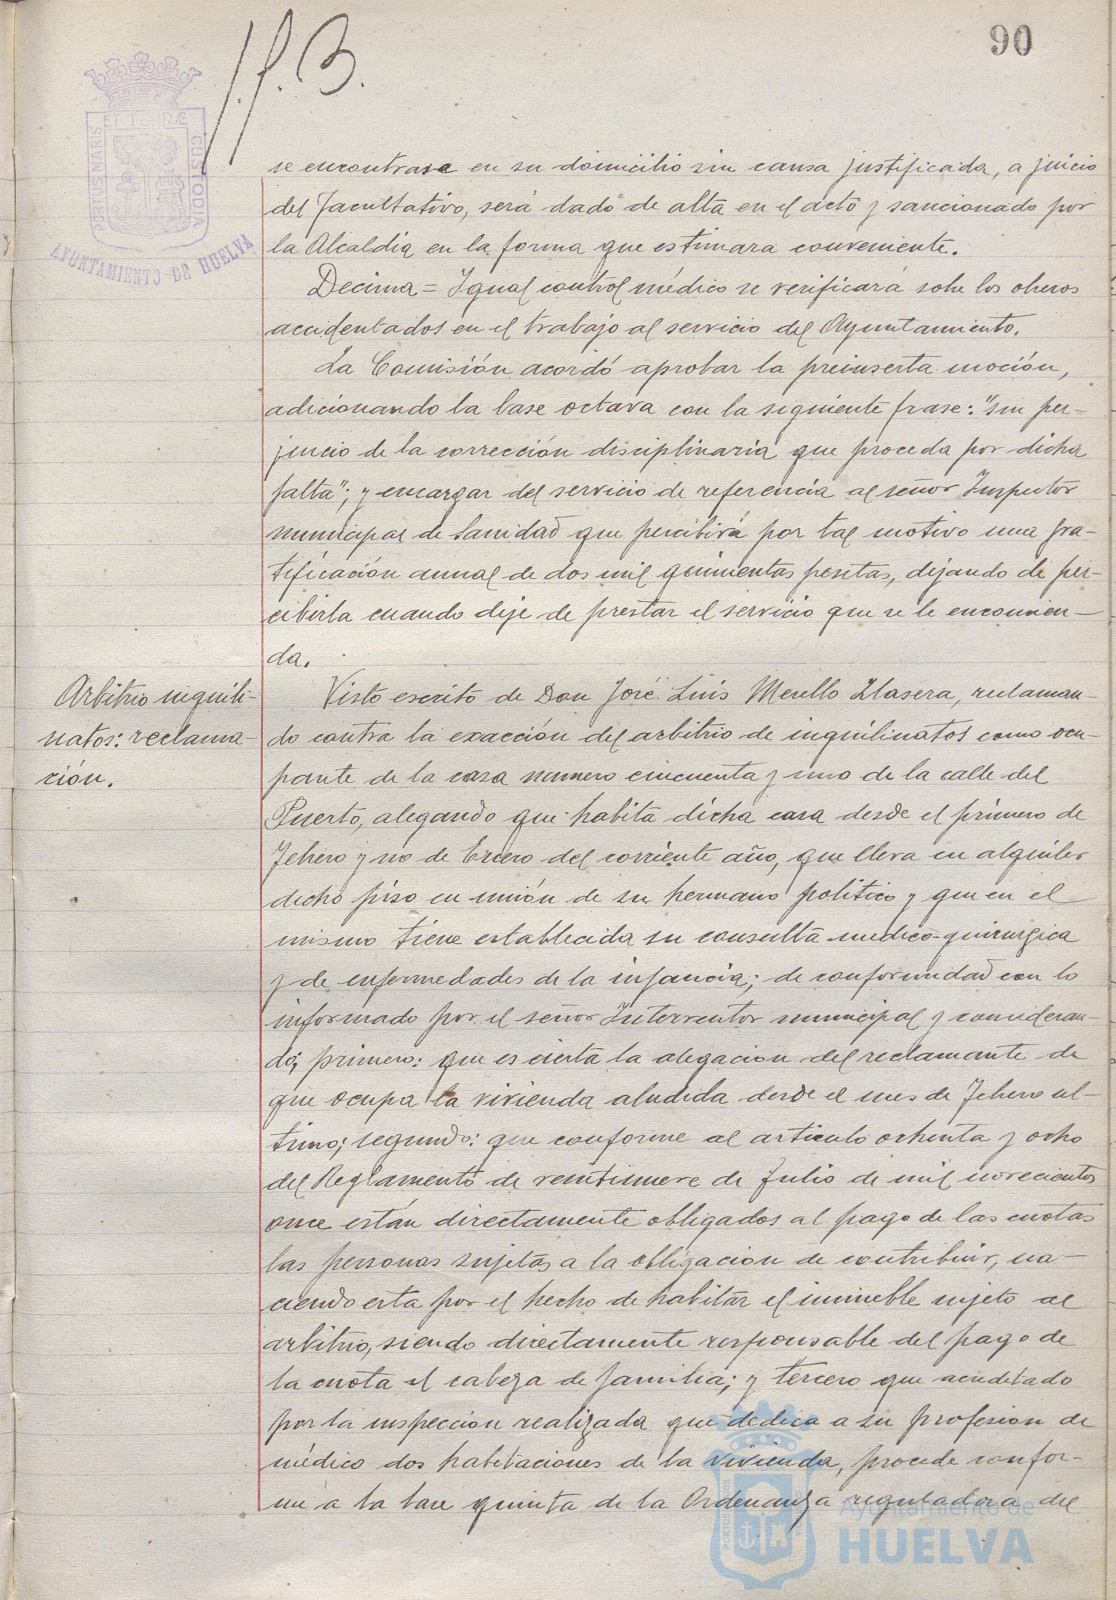 90
PORTUS MARIS
ET TERRÆ
CUSTODIA
AYUNTAMIENTO DE HUELVA
se encontrase en su domicilio sin causa justificada, a juicio
del facultativo, será dado de alta en el acto y sancionado por
la Alcaldia en la forma que estimara conveniente.
Decima = Igual control médico se verificará sobre los obreros
accidentados en el trabajo al servicio del Ayuntamiento.
La Comisión acordó aprobar la preinserta moción,
adicionando la base octava con la siguiente frase: "sin per-
juicio de la corrección disciplinaria que proceda por dicha
falta"; y encargar del servicio de referencia al señor Inspector
municipal de Sanidad que percibirá por tal motivo una gra-
tificación anual de dos mil quinientas pesetas, dejando de per-
cibirla cuando deje de prestar el servicio que se le encomien-
da.
Arbitrio inquili-
natos: reclama-
ción.
Visto escrito de Don José Luis Merello Llasera, reclaman-
do contra la exacción del arbitrio de inquilinatos como ocu-
pante de la casa numero cincuenta y uno de la calle del
Puerto, alegando que habita dicha casa desde el primero de
Febrero y no de Enero del corriente año, que lleva en alquiler
dicho piso en unión de su hermano politico y que en el
mismo tiene establecida su consulta medico-quirurgica
y de enfermedades de la infancia; de conformidad con lo
informado por el señor Interventor municipal y consideran-
do; primero: que es cierta la alegacion del reclamante de
que ocupa la vivienda aludida desde el mes de Febrero ul-
timo; segundo: que conforme al articulo ochenta y ocho
del Reglamento de veintinueve de Julio de mil novecientos
once están directamente obligados al pago de las cuotas
las personas sujetas a la obligacion de contribuir, na-
ciendo esta por el hecho de habitar el inmueble sujeto al
arbitrio, siendo directamente responsable del pago de
la cuota el cabeza de familia; y tercero que acreditado
por la inspeccion realizada que dedica a su profesion de
médico dos habitaciones de la vivienda, procede confor-
me a la base quinta de la Ordenanza reguladora del
Ayuntamiento de
HUELVA